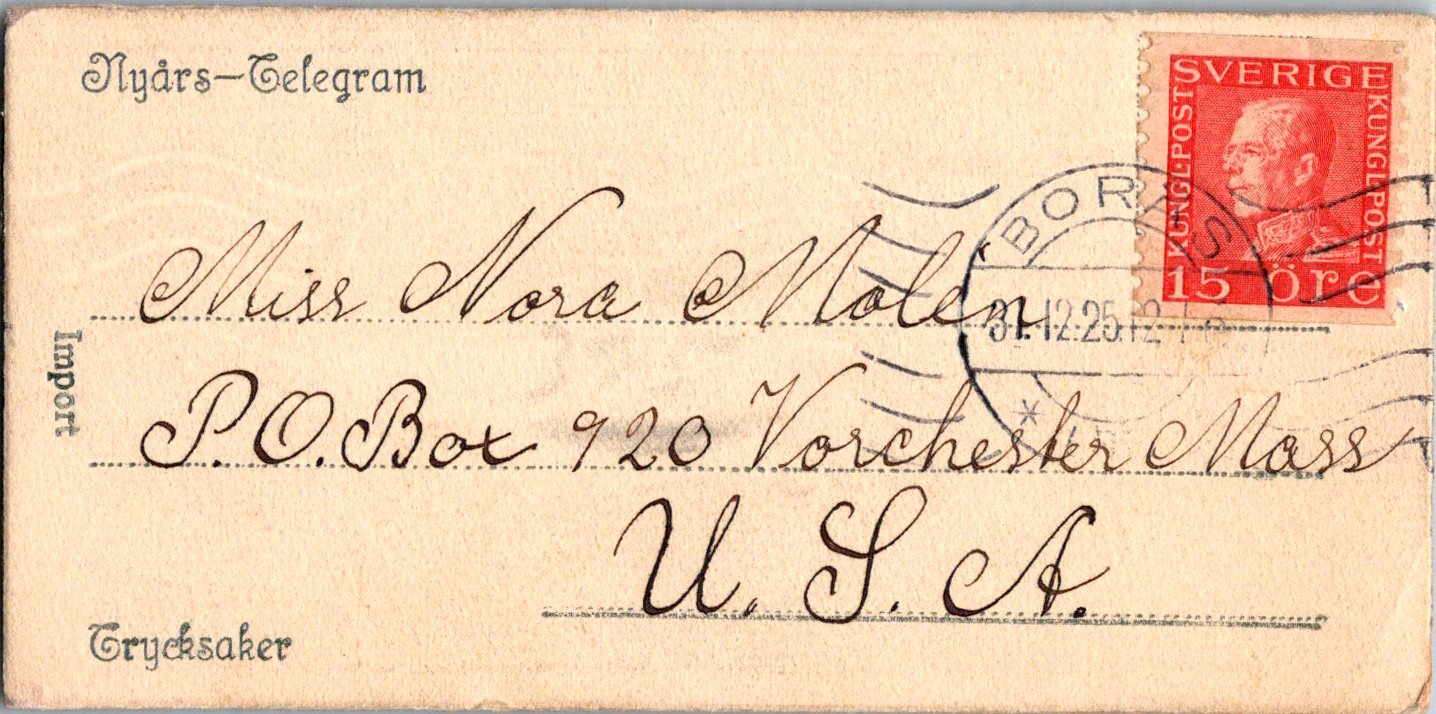 Nyårs-Telegram
SVERIGE
KUNGL. POST
KUNGL. POST
15 öre
BORÅS
31.12.25.12
Miss Nora Molén
Import
P.O. Box 920 Vorchester Mass
U. S. A.
Trycksaker